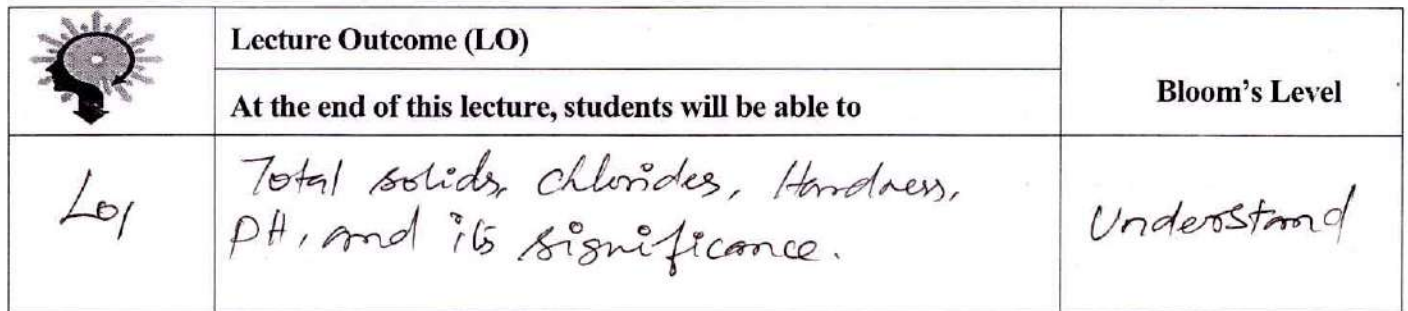 Lecture Outcome (LO)
At the end of this lecture, students will be able to
Bloom's Level
LO1
Total solids, chlorides, Hardness,
PH, and its significance.
Understand